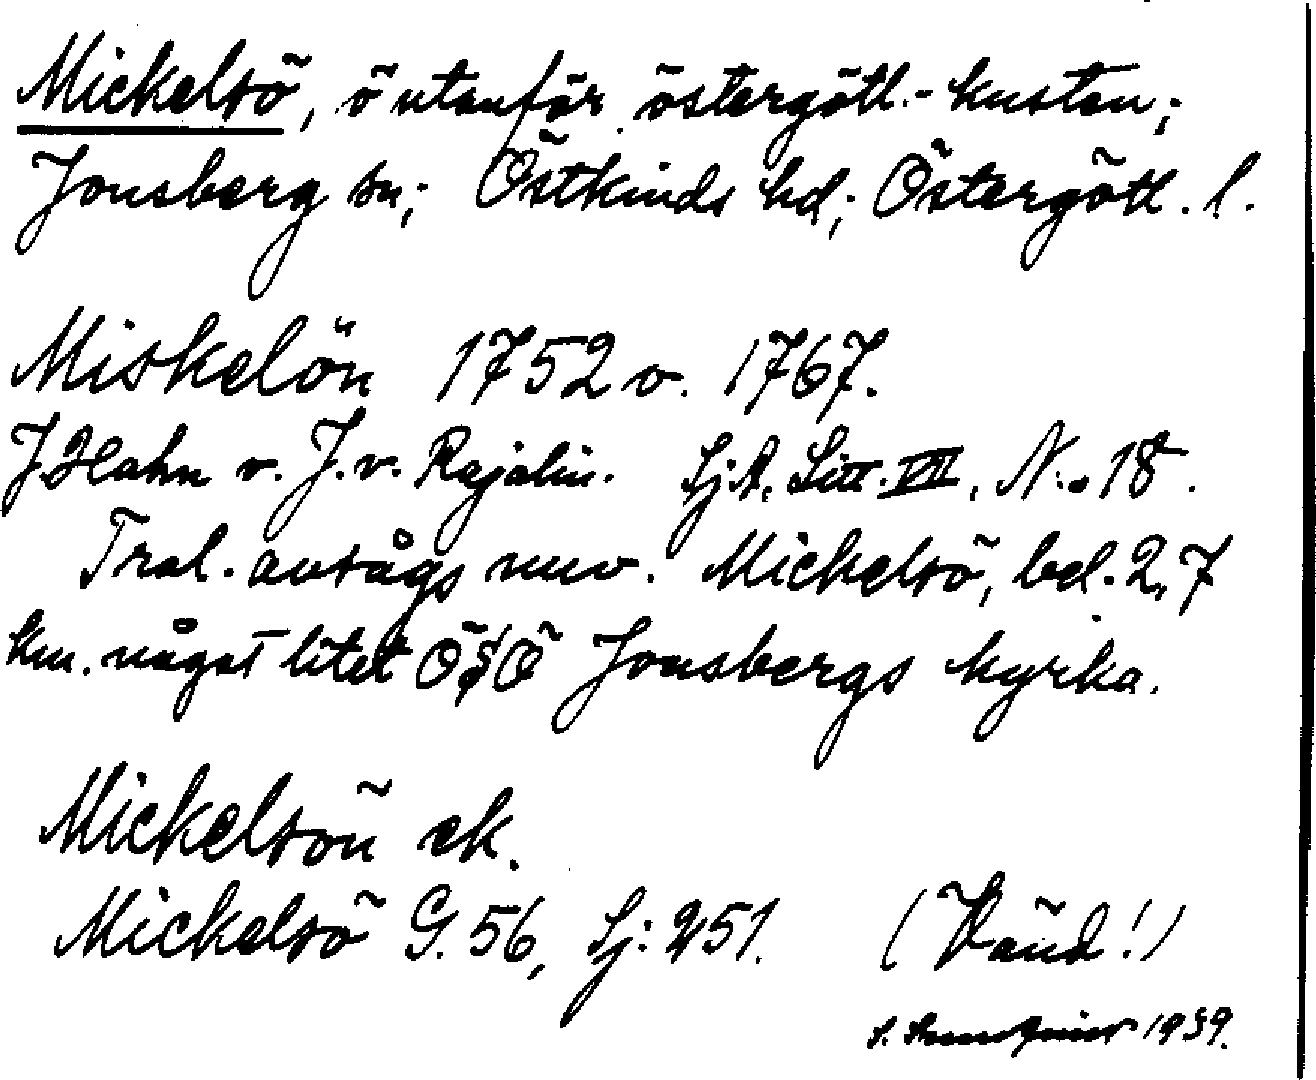 Mickelsö, ö utanför östergötl.-kusten;
Jonsberg sn; Östkinds hd; Östergötl. l.
Miskelön 1752 o. 1767.
J. Hahn v. J. v. Rajalin. SjA. Litt. VIII, N:o 18.
Trol. avsågs nuv. Mickelsö, bel. 2,7
km. något litet ÖSÖ Jonsbergs kyrka.
Mickelsön ek.
Mickelsö G. 56, Sj: 251. (Vänd!)
S. 1939.